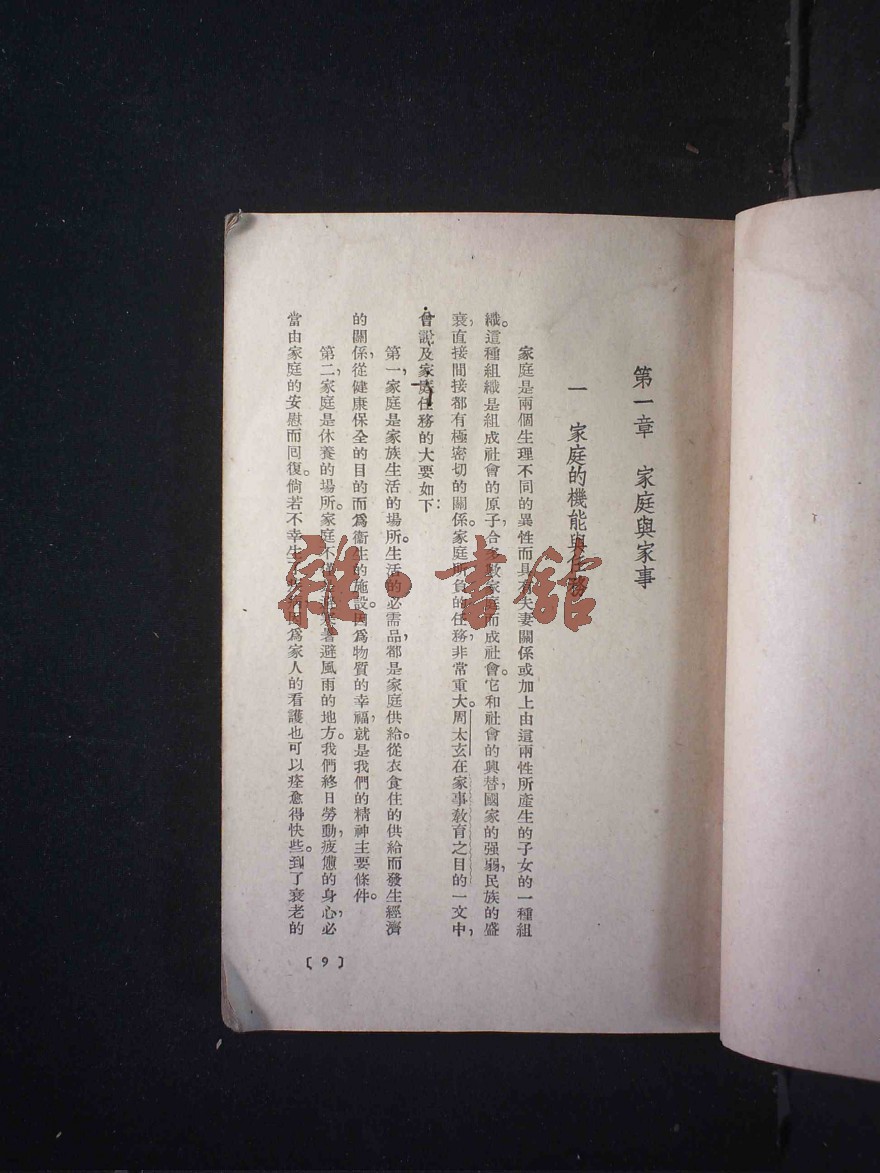 第一章　家庭與家事
一　家庭的機能與任務
家庭是兩個生理不同的異性而具有夫妻關係或加上由這兩性所產生的子女的一種組
織。這種組織是組成社會的原子，合多數家庭而成社會。它和社會的興替，國家的强弱，民族的盛
衰，直接間接都有極密切的關係。家庭所負的任務，非常重大。周太玄在家事敎育之目的一文中，
曾說及家庭任務的大要如下：
第一，家庭是家族生活的場所。生活的必需品，都是家庭供給。從衣食住的供給而發生經濟
的關係，從健康保全的目的而爲衞生的施設。因爲物質的幸福，就是我們的精神主要條件。
第二，家庭是休養的場所。家庭不僅是避寒暑避風雨的地方。我們終日勞動，疲憊的身心，必
當由家庭的安慰而囘復。倘若不幸生病因爲家人的看護也可以痊愈得快些。到了衰老的
〔9〕
雜·書館